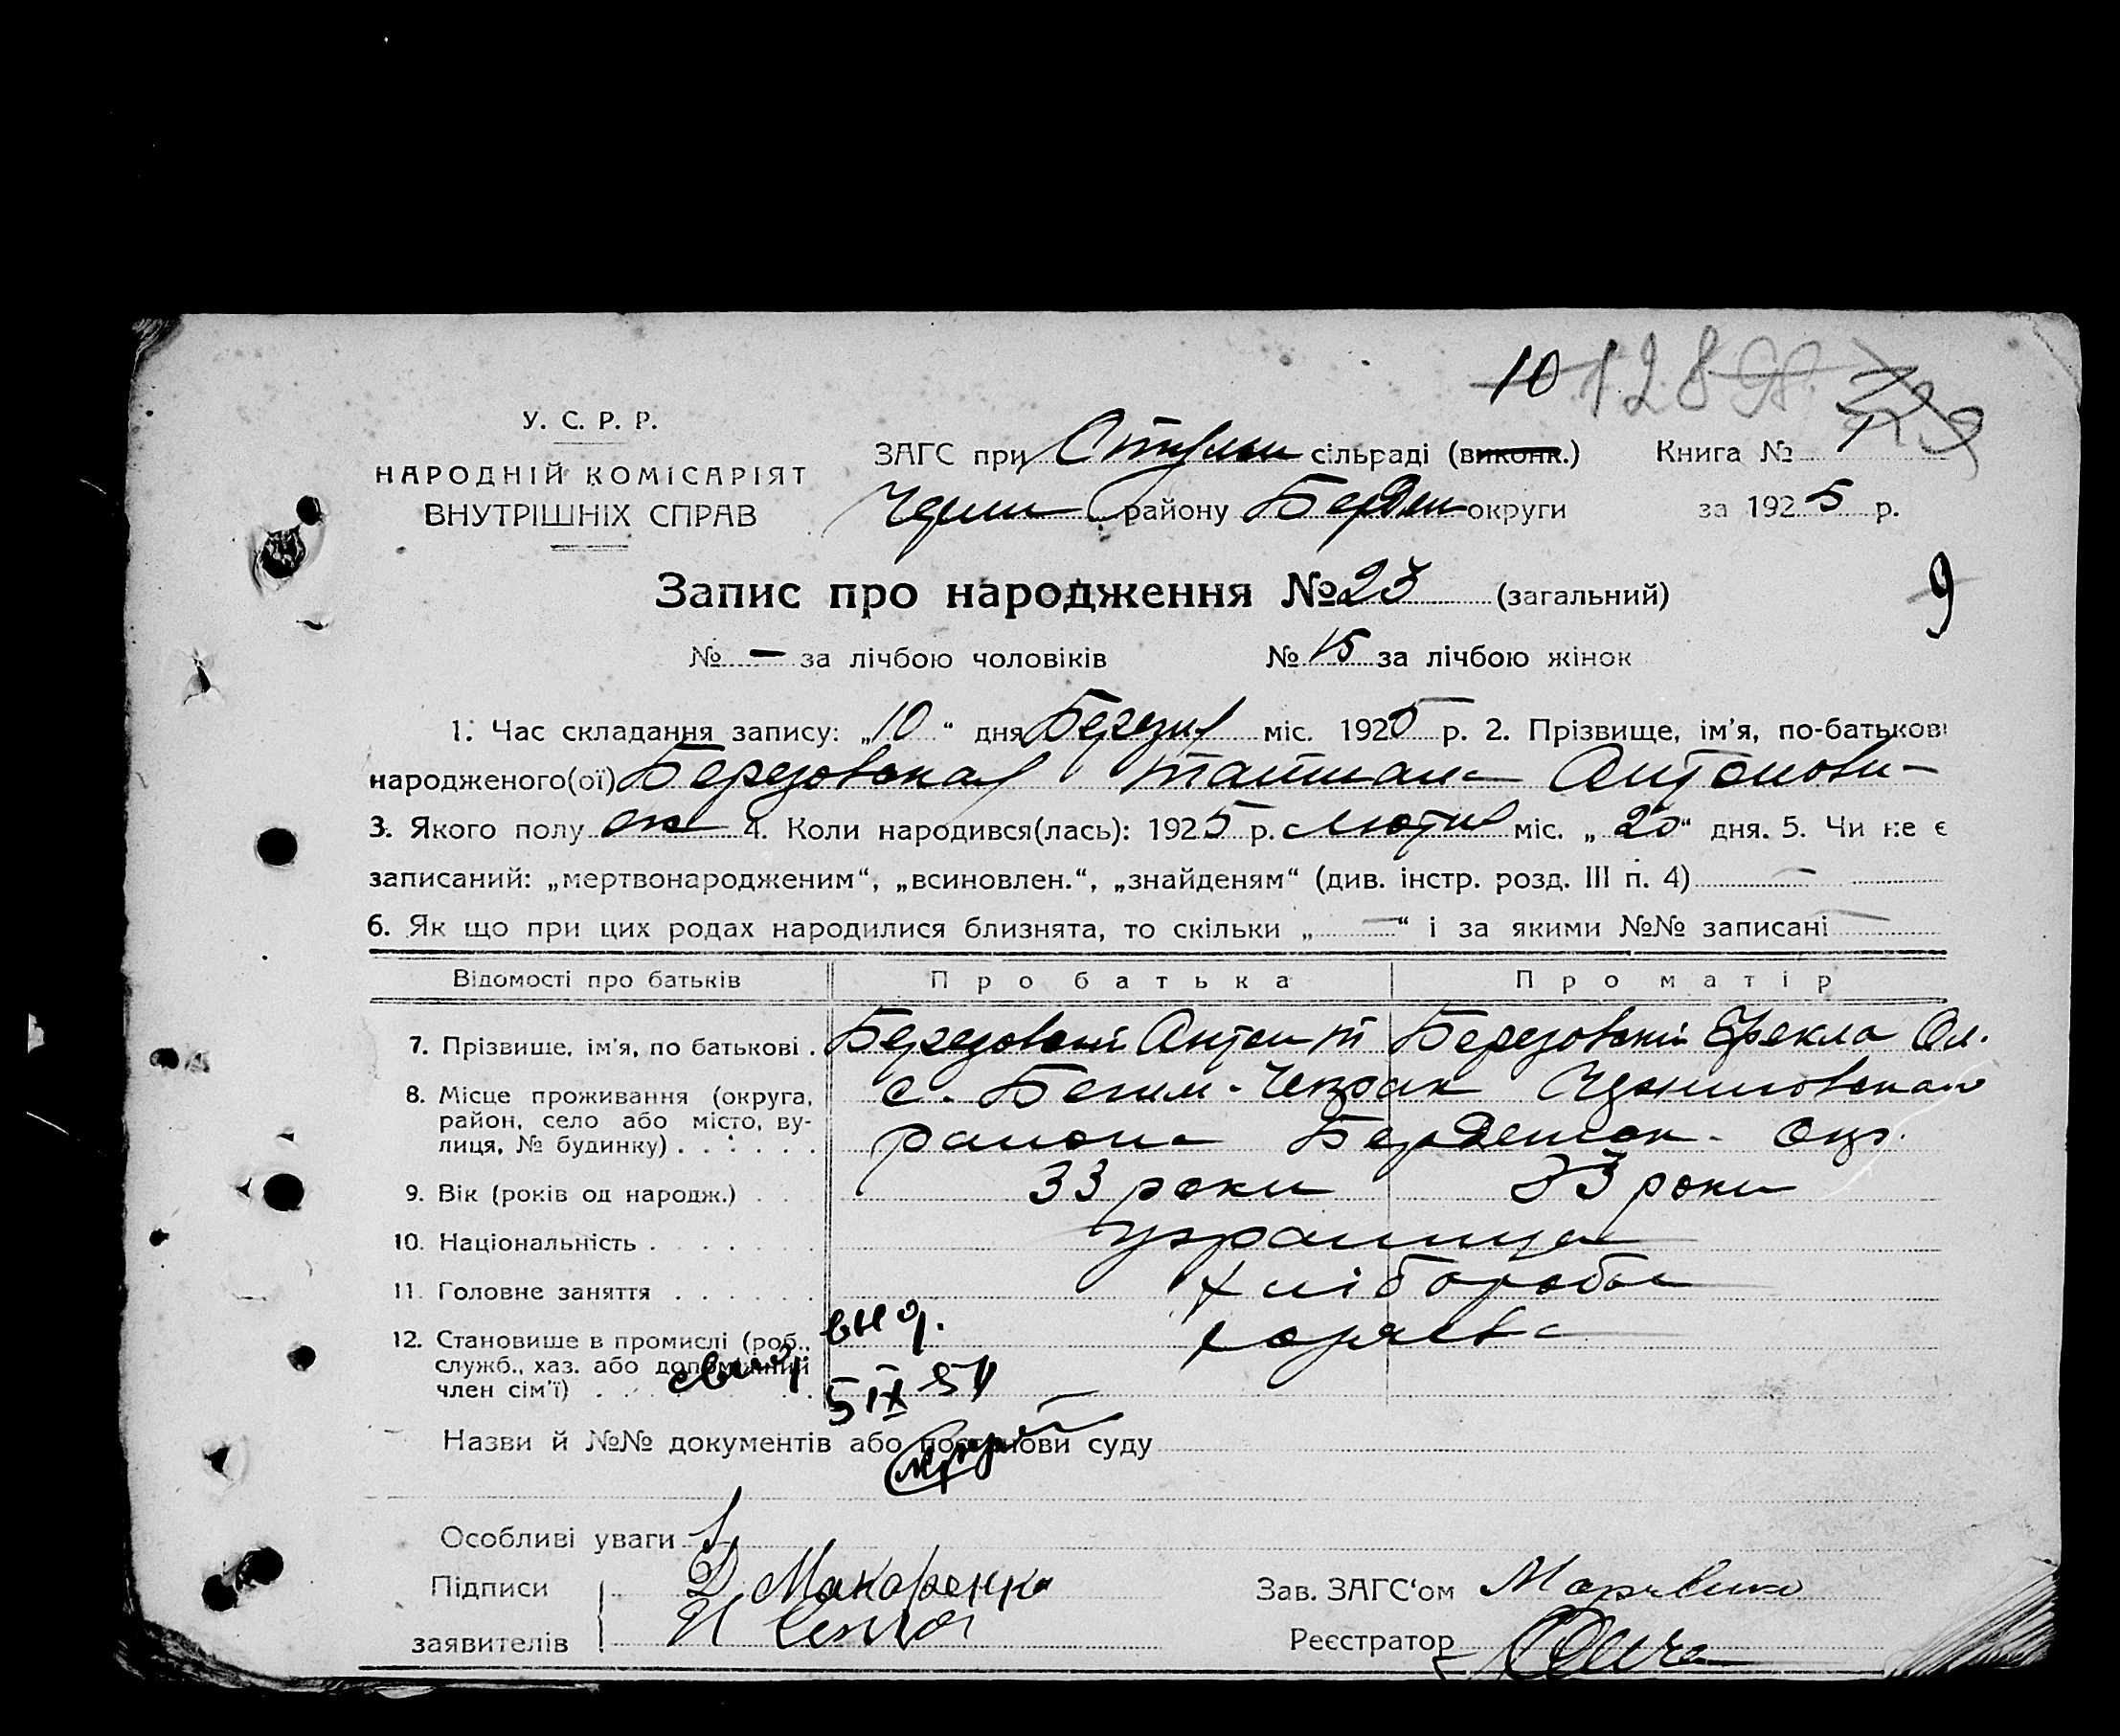 10 128
У. С. Р. Р.
НАРОДНІЙ КОМІСАРІЯТ
ВНУТРІШНІХ СПРАВ
ЗАГС при сільраді (виконк.) Книга № 1
району Бердян округи за 1925 р.
Запис про народження № 23 (загальний)
9
№ — за лічбою чоловіків № 15 за лічбою жінок
1. Час складання запису: „10“ дня Березня міс. 1925 р. 2. Прізвище, ім'я, по-батькові
народженого(ої) Березовская Антонови-
3. Якого полу 4. Коли народився(лась): 1925 р. Лютня міс. „20“ дня. 5. Чи не є
записаний: „мертвонародженим“, „всиновлен.“, „знайденям“ (див. інстр. розд. III п. 4) —
6. Як що при цих родах народилися близнята, то скільки „—“ і за якими №№ записані —
Відомості про батьків Про батька Про матір
7. Прізвище, ім'я, по батькові . Березовский Антон Т Березовский Ол.
8. Місце проживання (округа, с. Бегим-Чокрак
район, село або місто, ву- района Бердянск. Окр.
лиця, № будинку) . . . . . .
9. Вік (років од народж.) . . 33 роки 33 роки
10. Національність . . . . . . украинца
11. Головне заняття . . . . . . хлібороби
12. Становище в промислі (роб.,
служб., хаз. або допоміжний
член сім'ї) . . . . . . 5 IX 51
Назви й №№ документів або постанови суду
Особливі уваги
Підписи Д. Макаренко Зав. ЗАГС'ом
заявителів Реєстратор